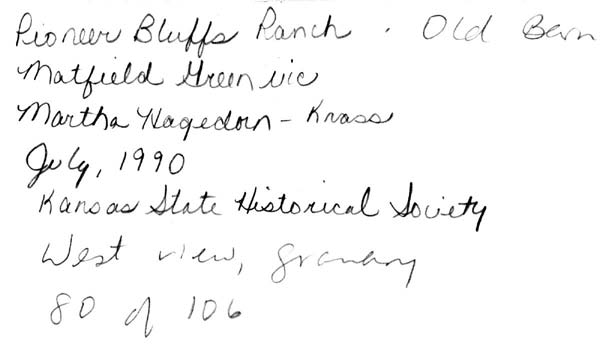 Pioneer Bluffs Ranch . Old Barn
Matfield Green vic
Martha Hagedorn-Krass
July, 1990
Kansas State Historical Society
West view, granary
80 of 106